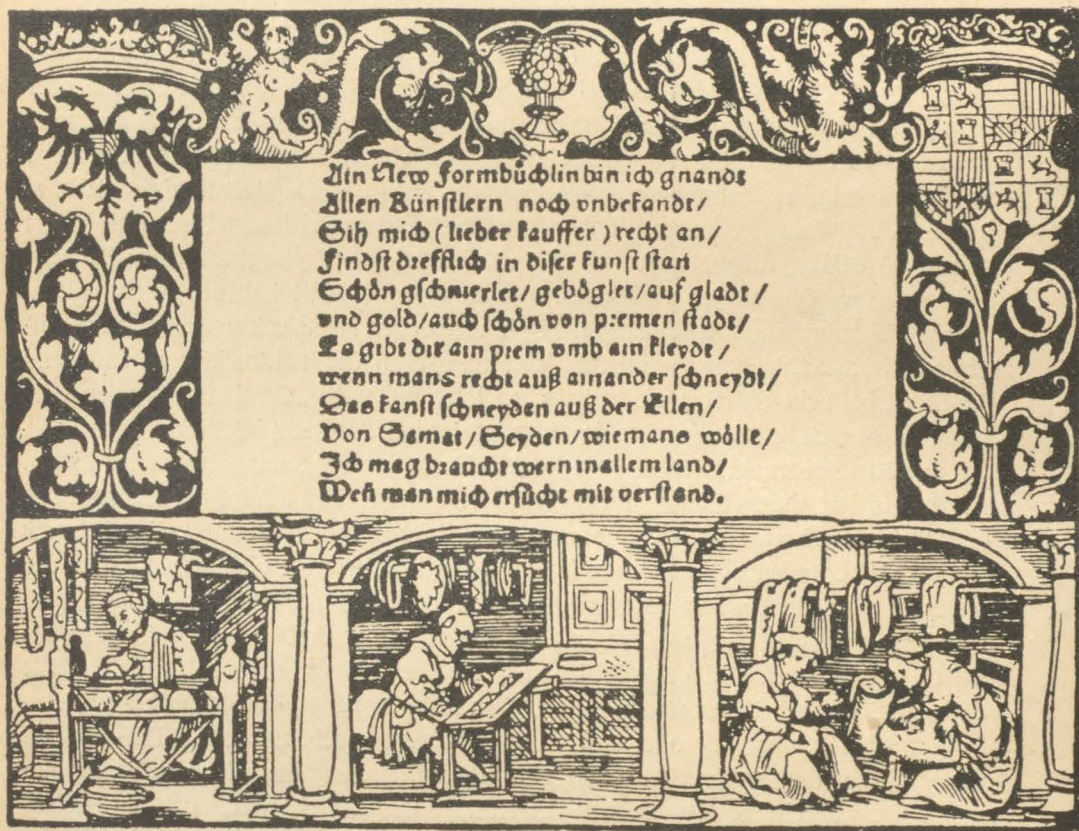 Ain New Formbüchlin bin ich gnandt
Allen Künstlern noch vnbekandt/
Sih mich (lieber kauffer) recht an/
Findst drefflich in diser kunst stan
Schön gschnierlet/geböglet/auf gladt/
vnd gold/auch schön von premen stadt/
Es gibt dir ain prem vmb ain kleydt/
wenn mans recht auß ainander schneydt/
Das kanst schneyden auß der Ellen/
Von Samat/Seyden/wiemans wölle/
Ich mag braucht wern inallem land/
Weñ man mich ersücht mit verstand.